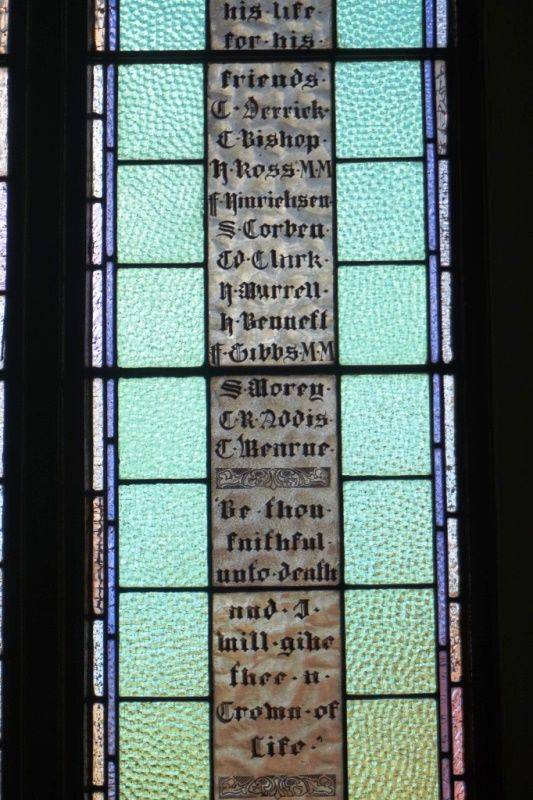 his·life
for·his·
friends·
C·Derrick·
C·Bishop·
H·Ross·M·M
F·Hinrichsen
S·Corben·
W·Clark·
H·Murrell·
H·Bennett
F·Gibbs·M·M
S·Morey·
C·R·Addis·
C·Menrue·
Be·thou·
faithful·
unto·death
and·I·
will·give
thee·a·
Crown·of
Life·